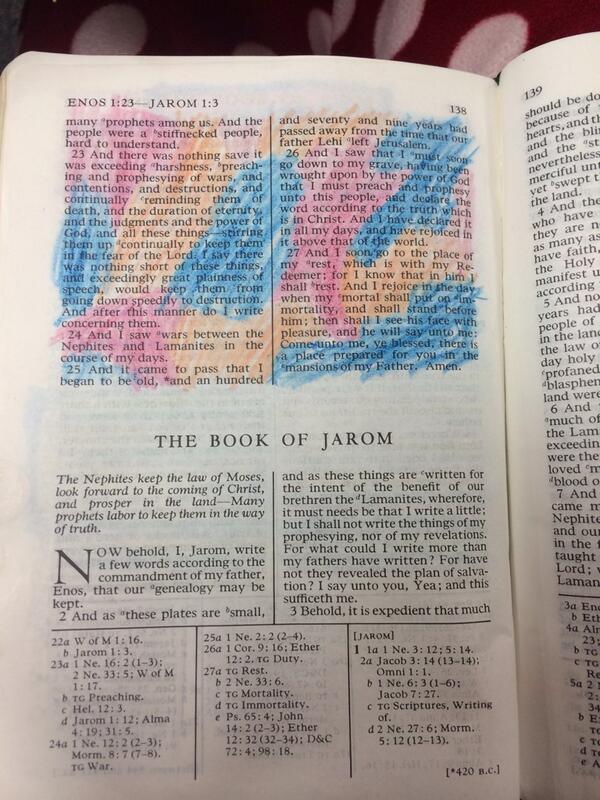 ENOS 1:23—JAROM 1:3
138
many ᵃprophets among us. And the
people were a ᵇstiffnecked people,
hard to understand.
23 And there was nothing save it
was exceeding ᵃharshness, ᵇpreach-
ing and prophesying of wars, and
contentions, and destructions, and
continually ᶜreminding them of
death, and the duration of eternity,
and the judgments and the power of
God, and all these things—stirring
them up ᵈcontinually to keep them
in the fear of the Lord. I say there
was nothing short of these things,
and exceedingly great plainness of
speech, would keep them from
going down speedily to destruction.
And after this manner do I write
concerning them.
24 And I saw ᵃwars between the
Nephites and Lamanites in the
course of my days.
25 And it came to pass that I
began to be old, *and an hundred
and seventy and nine years had
passed away from the time that our
father Lehi ᵃleft Jerusalem.
26 And I saw that I ᵃmust soon
go down to my grave, having been
wrought upon by the power of God
that I must preach and prophesy
unto this people, and declare the
word according to the truth which
is in Christ. And I have declared it
in all my days, and have rejoiced in
it above that of the world.
27 And I soon go to the place of
my ᵃrest, which is with my Re-
deemer; for I know that in him I
shall ᵇrest. And I rejoice in the day
when my ᶜmortal shall put on ᵈim-
mortality, and shall stand before
him; then shall I see his face with
pleasure, and he will say unto me:
Come unto me, ye blessed, there is
a place prepared for you in the
ᵉmansions of my Father. Amen.
THE BOOK OF JAROM
The Nephites keep the law of Moses,
look forward to the coming of Christ,
and prosper in the land—Many
prophets labor to keep them in the way
of truth.
NOW behold, I, Jarom, write
a few words according to the
commandment of my father,
Enos, that our ᵃgenealogy may be
kept.
2 And as ᵃthese plates are ᵇsmall,
and as these things are ᶜwritten for
the intent of the benefit of our
brethren the ᵈLamanites, wherefore,
it must needs be that I write a little;
but I shall not write the things of my
prophesying, nor of my revelations.
For what could I write more than
my fathers have written? For have
not they revealed the plan of salva-
tion? I say unto you, Yea; and this
sufficeth me.
3 Behold, it is expedient that much
22a W of M 1: 16.
b Jarom 1: 3.
23a 1 Ne. 16: 2 (1–3);
2 Ne. 33: 5; W of M
1: 17.
b TG Preaching.
c Hel. 12: 3.
d Jarom 1: 12; Alma
4: 19; 31: 5.
24a 1 Ne. 12: 2 (2–3);
Morm. 8: 7 (7–8).
TG War.
25a 1 Ne. 2: 2 (2–4).
26a 1 Cor. 9: 16; Ether
12: 2. TG Duty.
27a TG Rest.
b 2 Ne. 33: 6.
c TG Mortality.
d TG Immortality.
e Ps. 65: 4; John
14: 2 (2–3); Ether
12: 32 (32–34); D&C
72: 4; 98: 18.
[JAROM]
1 1a 1 Ne. 3: 12; 5: 14.
2a Jacob 3: 14 (13–14);
Omni 1: 1.
b 1 Ne. 6: 3 (1–6);
Jacob 7: 27.
c TG Scriptures, Writing
of.
d 2 Ne. 27: 6; Morm.
5: 12 (12–13).
[*420 B.C.]
139
should be do
because of
hearts, and th
and the blin
and the ᵃst
nevertheless
merciful unt
yet ᵇswept t
the land.
4 And the
who have
they are no
as many as
have faith,
the Holy
manifest u
according
5 And no
years had
people of
in the lan
the law o
day holy
ᶜprofaned
ᵈblasphem
land were
6 And
ᵃmuch of
the Lam
exceedin
were the
loved ᵉm
ᵈblood o
7 And
came m
Nephite
and our
in the f
taught
Lord; v
Laman
3a Eno
b Eth
4a Alm